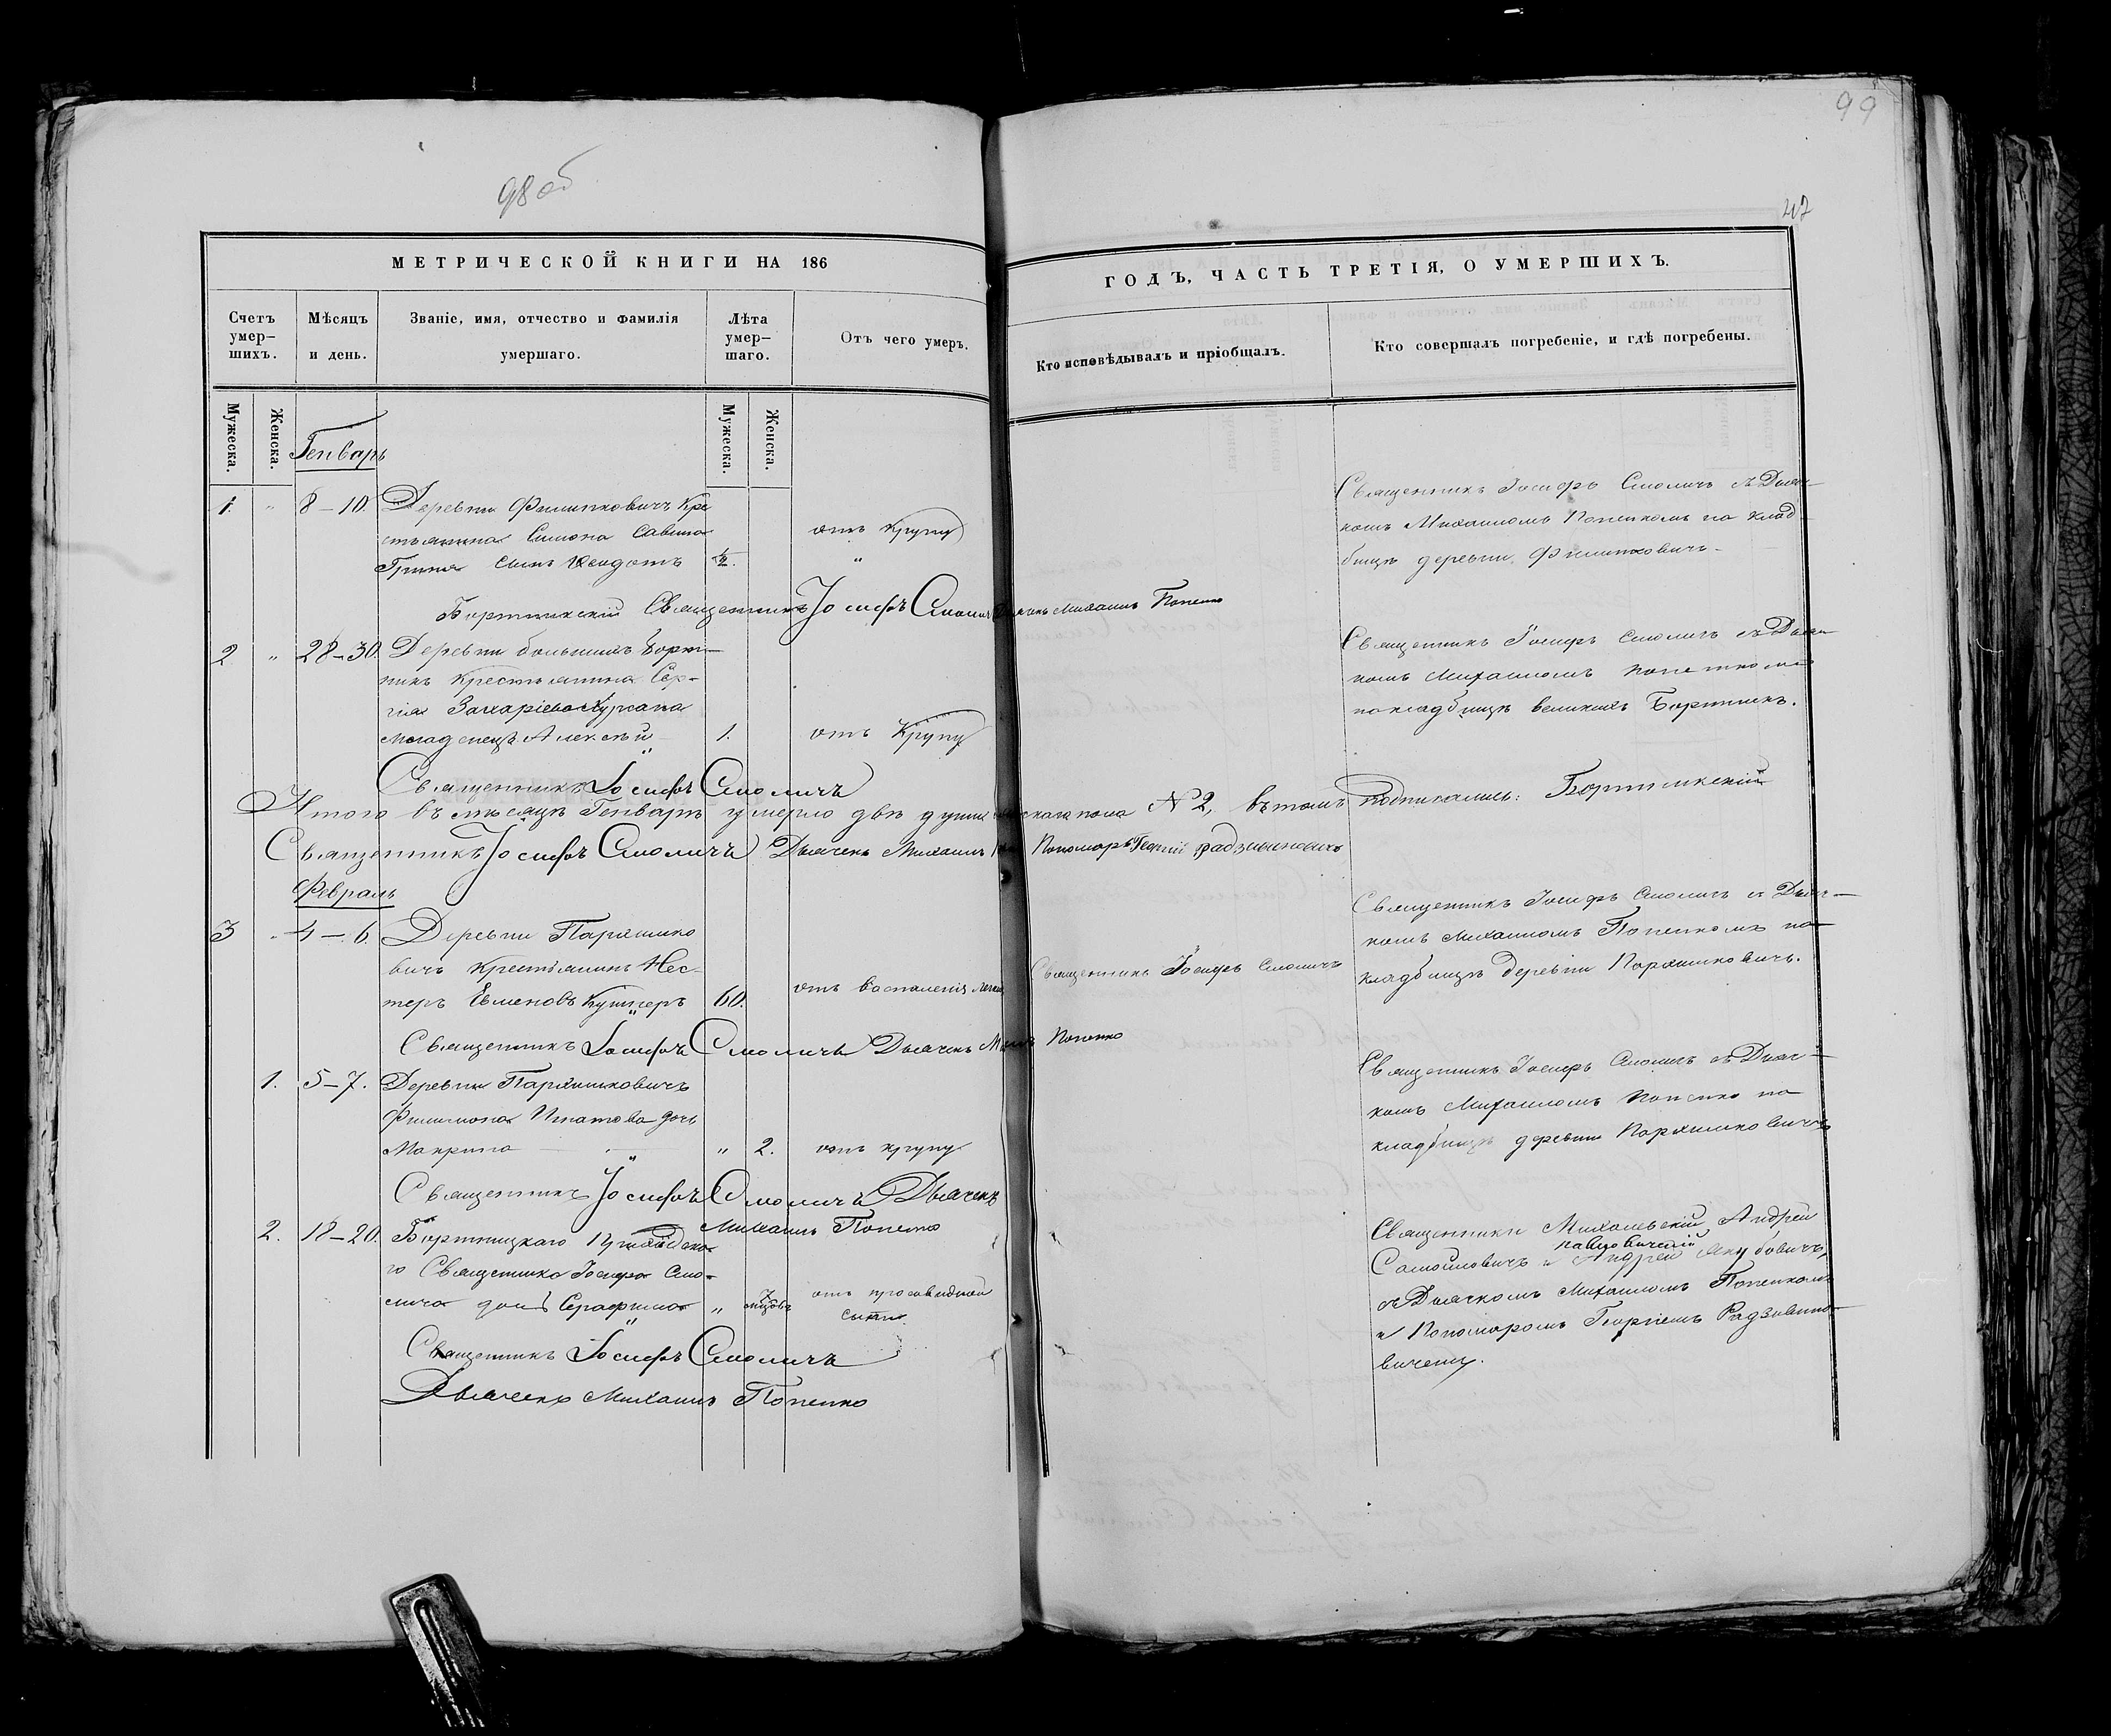 98 об
99
47
МЕТРИЧЕСКОЙ КНИГИ НА 186
ГОДЪ, ЧАСТЬ ТРЕТІЯ, О УМЕРШИХЪ.
Счетъ умер-шихъ.
Мѣсяцъ и день.
Званіе, имя, отчество и фамилія умершаго.
Лѣта умер-шаго.
Отъ чего умеръ.
Кто исповѣдывалъ и пріобщалъ.
Кто совершалъ погребеніе, и гдѣ погребены.
Мужеска.
Женска.
Мужеска.
Женска.
Генварь
1. " 8-10. Деревни Филипковичъ Кре
стьянина Симона Савина
сынъ 1/2.
отъ крупу
"
Священникъ Іосифъ Смоличъ съ Дьяч-
комъ Михаиломъ Попенкомъ на клад
бищѣ деревни Филипковичъ.
Священникъ Іосифъ Смоличъ Дьячекъ Михаилъ Попенко
2 " 28-30. Деревни большихъ Борт-
никъ крестьянина Сер-
гія Захаріева
младенецъ Алексѣй 1. отъ крупу
Священникъ Іосифъ Смоличъ съ Дьяч
комъ Михаиломъ Попенкомъ
на кладбищѣ великихъ Бортникъ.
Священникъ Іосифъ Смоличъ
Итого въ мѣсяцѣ Генварѣ умерло двѣ души мескаго пола № 2, въ томъ подписались:
Священникъ Іосифъ Смоличъ Дьячекъ Михаилъ Пономарь Георгій Радзивиновичъ
Февраль
3 " 4-6. Деревни
вичъ крестьянинъ Нес-
теръ Евменовъ 60. отъ воспаленія легкихъ
Священникъ Іосифъ Смоличъ
Священникъ Іосифъ Смоличъ съ Дьяч-
комъ Михаиломъ Попенкомъ на
кладбищѣ деревни
Священникъ Іосифъ Смоличъ Дьячекъ Попенко
1. 5-7. Деревни
Филимона Игнатова дочь
Макрина " 2. отъ крупу
Священникъ Іосифъ Смоличъ съ Дьяч-
комъ Михаиломъ Попенко на
кладбищѣ деревни
Священникъ Іосифъ Смоличъ Дьячекъ
Михаилъ Попенко
2. 18-20. Бортницкаго Приходска-
го Священника Іосифа Смо-
лича дочь Серафима " 7 мѣсяцовъ отъ просовидной
сыпи
Священники Михалевскій Андрей
Самойловичъ и Андрей Якубовичъ,
съ Дьячкомъ Михаиломъ Попенкомъ
и Пономаромъ Георгіемъ Радзивино-
вичемъ.
Священникъ Іосифъ Смоличъ
Дьячекъ Михаилъ Попенко